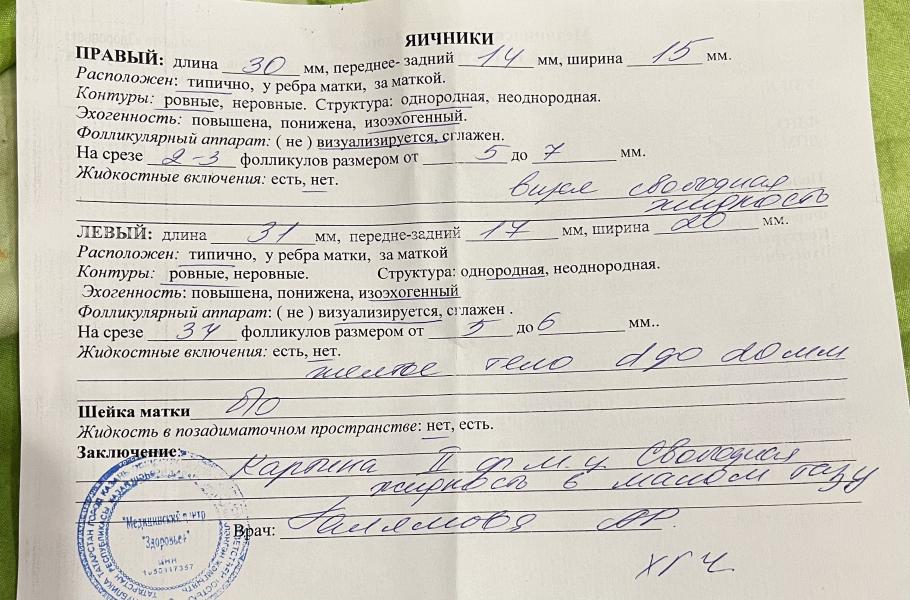 ЯИЧНИКИ
ПРАВЫЙ: длина 30 мм, переднее-задний 14 мм, ширина 15 мм.
Расположен: типично, у ребра матки, за маткой.
Контуры: ровные, неровные. Структура: однородная, неоднородная.
Эхогенность: повышена, понижена, изоэхогенный.
Фолликулярный аппарат: ( не ) визуализируется, сглажен.
На срезе 2-3 фолликулов размером от 5 до 7 мм.
Жидкостные включения: есть, нет.
свободная
жидкость
ЛЕВЫЙ: длина 31 мм, передне-задний 17 мм, ширина 20 мм.
Расположен: типично, у ребра матки, за маткой
Контуры: ровные, неровные. Структура: однородная, неоднородная.
Эхогенность: повышена, понижена, изоэхогенный
Фолликулярный аппарат: ( не ) визуализируется, сглажен .
На срезе фолликулов размером от 5 до 6 мм..
Жидкостные включения: есть, нет.
желтое тело d до 20 мм
Шейка матки
Жидкость в позадиматочном пространстве: нет, есть.
Заключение: Картина II ф м.ц Свободная
жидкость в малом тазу
Врач:
ХГЧ
"Медицинский центр
"Здоровье"
ИНН